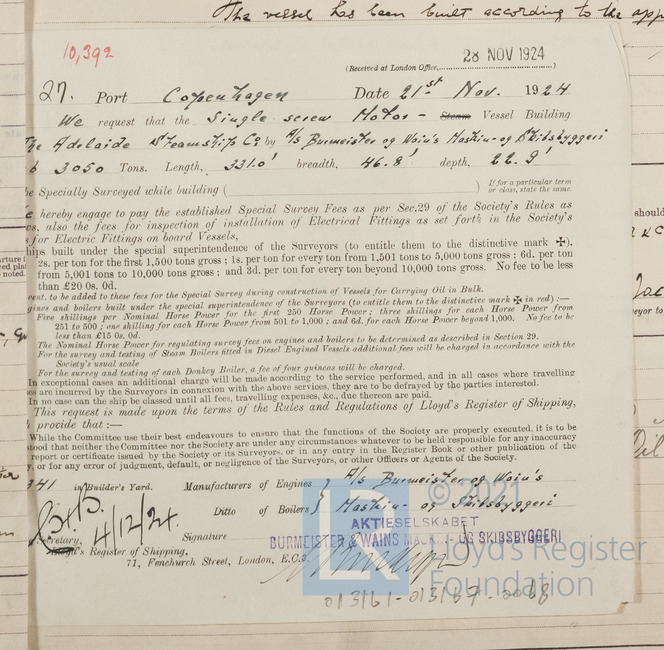 The vessel has been built according to the app
10,392
28 NOV 1924
(Received at London Office,
27. Port Copenhagen Date 21st Nov. 1924
We request that the Single screw Motor - Steam Vessel Building
The Adelaide Steamship Co by A/s Burmeister og Wain's Maskin-og Skibsbyggeri
3050 Tons. Length, 331.0' breadth, 46.8' depth, 22.9'
be Specially Surveyed while building ( ) If for a particular term
or class, state the same.
hereby engage to pay the established Special Survey Fees as per Sec.29 of the Society's Rules as
also the fees for inspection of installation of Electrical Fittings as set forth in the Society's
for Electric Fittings on board Vessels.
hips built under the special superintendence of the Surveyors (to entitle them to the distinctive mark ✠),
2s. per ton for the first 1,500 tons gross ; 1s. per ton for every ton from 1,501 to 5,000 tons gross ; 6d. per ton
from 5,001 tons to 10,000 tons gross ; and 3d. per ton for every ton beyond 10,000 tons gross. No fee to be less
than £20 0s. 0d.
cent. to be added to these fees for the Special Survey during construction of Vessels for Carrying Oil in Bulk.
gines and boilers built under the special superintendence of the Surveyors (to entitle them to the distinctive mark ✠ in red) :—
Five shillings per Nominal Horse Power for the first 250 Horse Power ; three shillings for each Horse Power from
251 to 500 ; one shilling for each Horse Power from 501 to 1,000 ; and 6d. for each Horse Power beyond 1,000. No fee to be
less than £15 0s. 0d.
The Nominal Horse Power for regulating survey fees on engines and boilers to be determined as described in Section 29.
For the survey and testing of Steam Boilers fitted in Diesel Engined Vessels additional fees will be charged in accordance with the
Society's usual scale
For the survey and testing of each Donkey Boiler, a fee of four guineas will be charged.
In exceptional cases an additional charge will be made according to the service performed, and in all cases where travelling
es are incurred by the Surveyors in connexion with the above services, they are to be defrayed by the parties interested.
In no case can the ship be classed until all fees, travelling expenses, &c., due thereon are paid.
This request is made upon the terms of the Rules and Regulations of Lloyd's Register of Shipping,
provide that :—
While the Committee use their best endeavours to ensure that the functions of the Society are properly executed, it is to be
stood that neither the Committee nor the Society are under any circumstances whatever to be held responsible for any inaccuracy
report or certificate issued by the Society or its Surveyors, or in any entry in the Register Book or other publication of the
y, or for any error of judgment, default, or negligence of the Surveyors, or other Officers or Agents of the Society.
341 in Builder's Yard. Manufacturers of Engines A/s Burmeister og Wain's
Ditto of Boilers Maskin- og Skibsbyggeri
4/12/24.
© 2021
AKTIESELSKABET
Secretary, Signature BURMEISTER & WAINS MASKIN- OG SKIBSBYGGERI
Lloyd's Register of Shipping.
71, Fenchurch Street, London, E.C.3.
Lloyd's Register
Foundation
013161-013167-0068